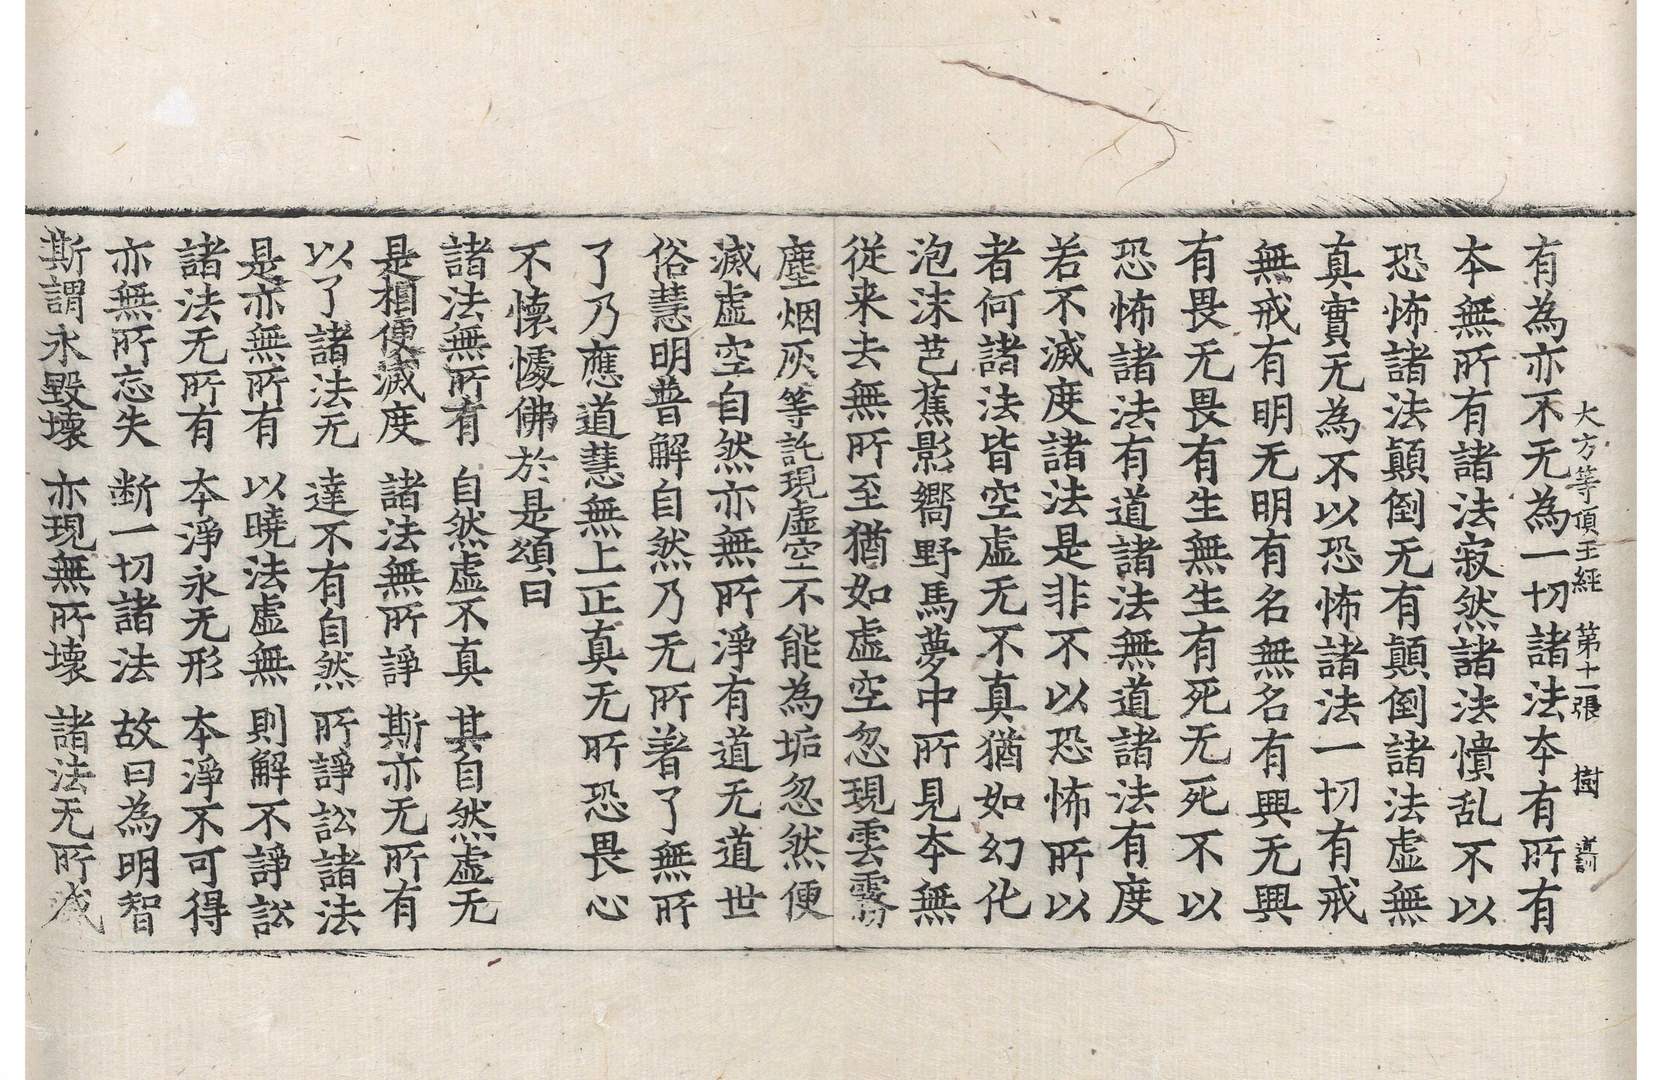 大方等頂王經 第十一張 樹 道訓
有為亦不无為一切諸法夲有所有
夲無所有諸法寂然諸法憒乱不以
恐怖諸法顛倒无有顛倒諸法虛無
真實无為不以恐怖諸法一切有戒
無戒有明无明有名無名有興无興
有畏无畏有生無生有死无死不以
恐怖諸法有道諸法無道諸法有度
若不滅度諸法是非不以恐怖所以
者何諸法皆空虛无不真猶如幻化
泡沫芭蕉影嚮野馬夢中所見夲無
從来去無所至猶如虛空忽現雲霧
塵烟灰等託現虛空不能為垢忽然便
滅虛空自然亦無所淨有道无道世
俗慧明普解自然乃无所著了無所
了乃應道慧無上正真无所恐畏心
不懐懅佛於是頌曰
諸法無所有 自然虛不真 其自然虛无
是相便滅度 諸法無所諍 斯亦无所有
以了諸法无 達不有自然 所諍訟諸法
是亦無所有 以曉法虛無 則解不諍訟
諸法无所有 夲淨永无形 夲淨不可得
亦無所忘失 断一切諸法 故曰為明智
斯謂永毀壞 亦現無所壞 諸法无所滅